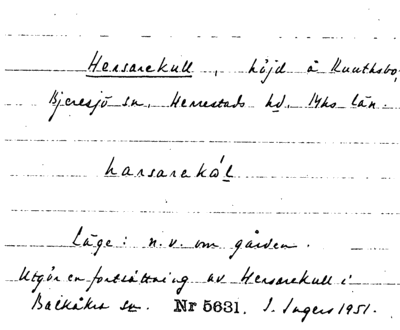 Hersarekull, höjd å Ruuthsbo,
Bjeresjö sn, Herrestads hd, Mhs län.
harsarekál
Läge: n.v. om gården.
Utgör en fortsättning av Hersarekull i
Balkåkra sn. Nr 5631. I. Ingers 1951.